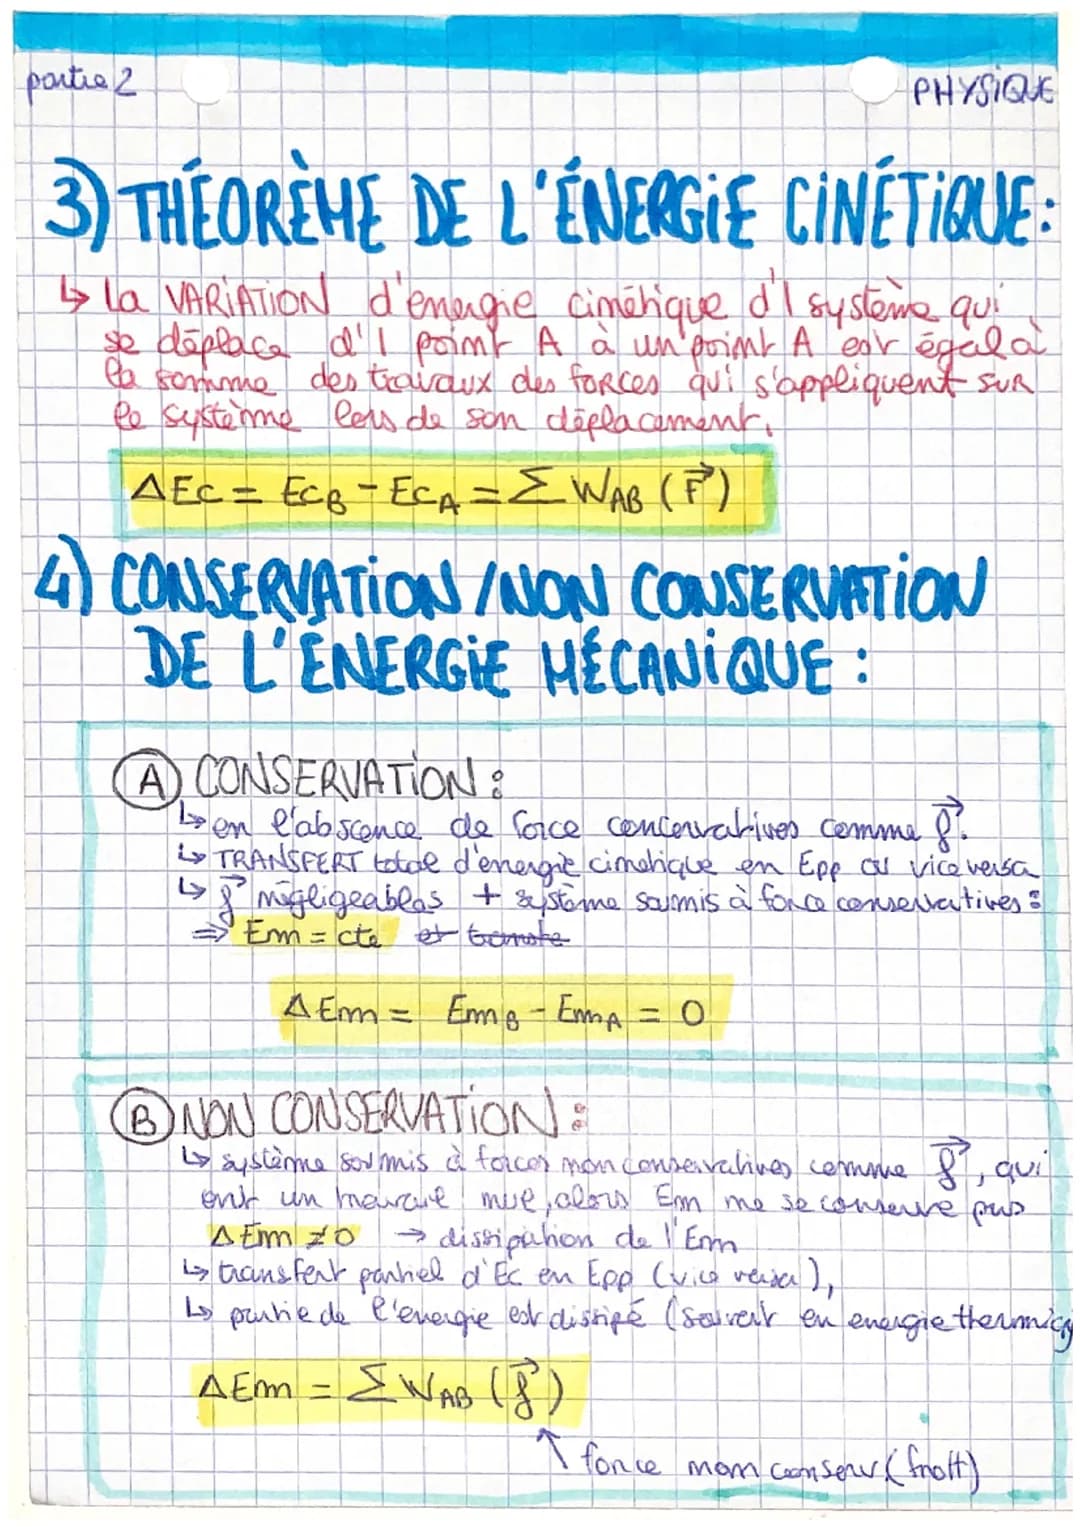 partie 2
PHYSIQUE
3) THÉORÈME DE L'ÉNERGIE CINÉTIQUE:
↳ La VARIATION d'énergie cinétique d'1 système qui
se déplace d'1 point A à un point A est égal à
la somme des travaux des forces qui s'appliquent sur
le système lors de son déplacement.
ΔEc = EcB - EcA = Σ WAB (F⃗)
4) CONSERVATION / NON CONSERVATION
DE L'ÉNERGIE MÉCANIQUE :
A CONSERVATION :
↳ en l'abscence de force concervatives comme f⃗.
↳ TRANSFERT totale d'énergie cinetique en Epp ou vice versa
↳ f⃗ négligeables + système soumis à force conservatives :
⇒ Em = cte et transfe
ΔEm = EmB - EmA = 0
B NON CONSERVATION :
↳ système soumis à forces non conservatives comme f⃗, qui
ont un travail nul, alors Em ne se conserve pas
ΔEm ≠ 0 → dissipation de l'Em
↳ transfert partiel d'Ec en Epp (vice versa),
↳ partie de l'énergie est dissipé (souvent en energie thermiq
ΔEm = Σ WAB (f⃗)
↑ force non conserv (frott)